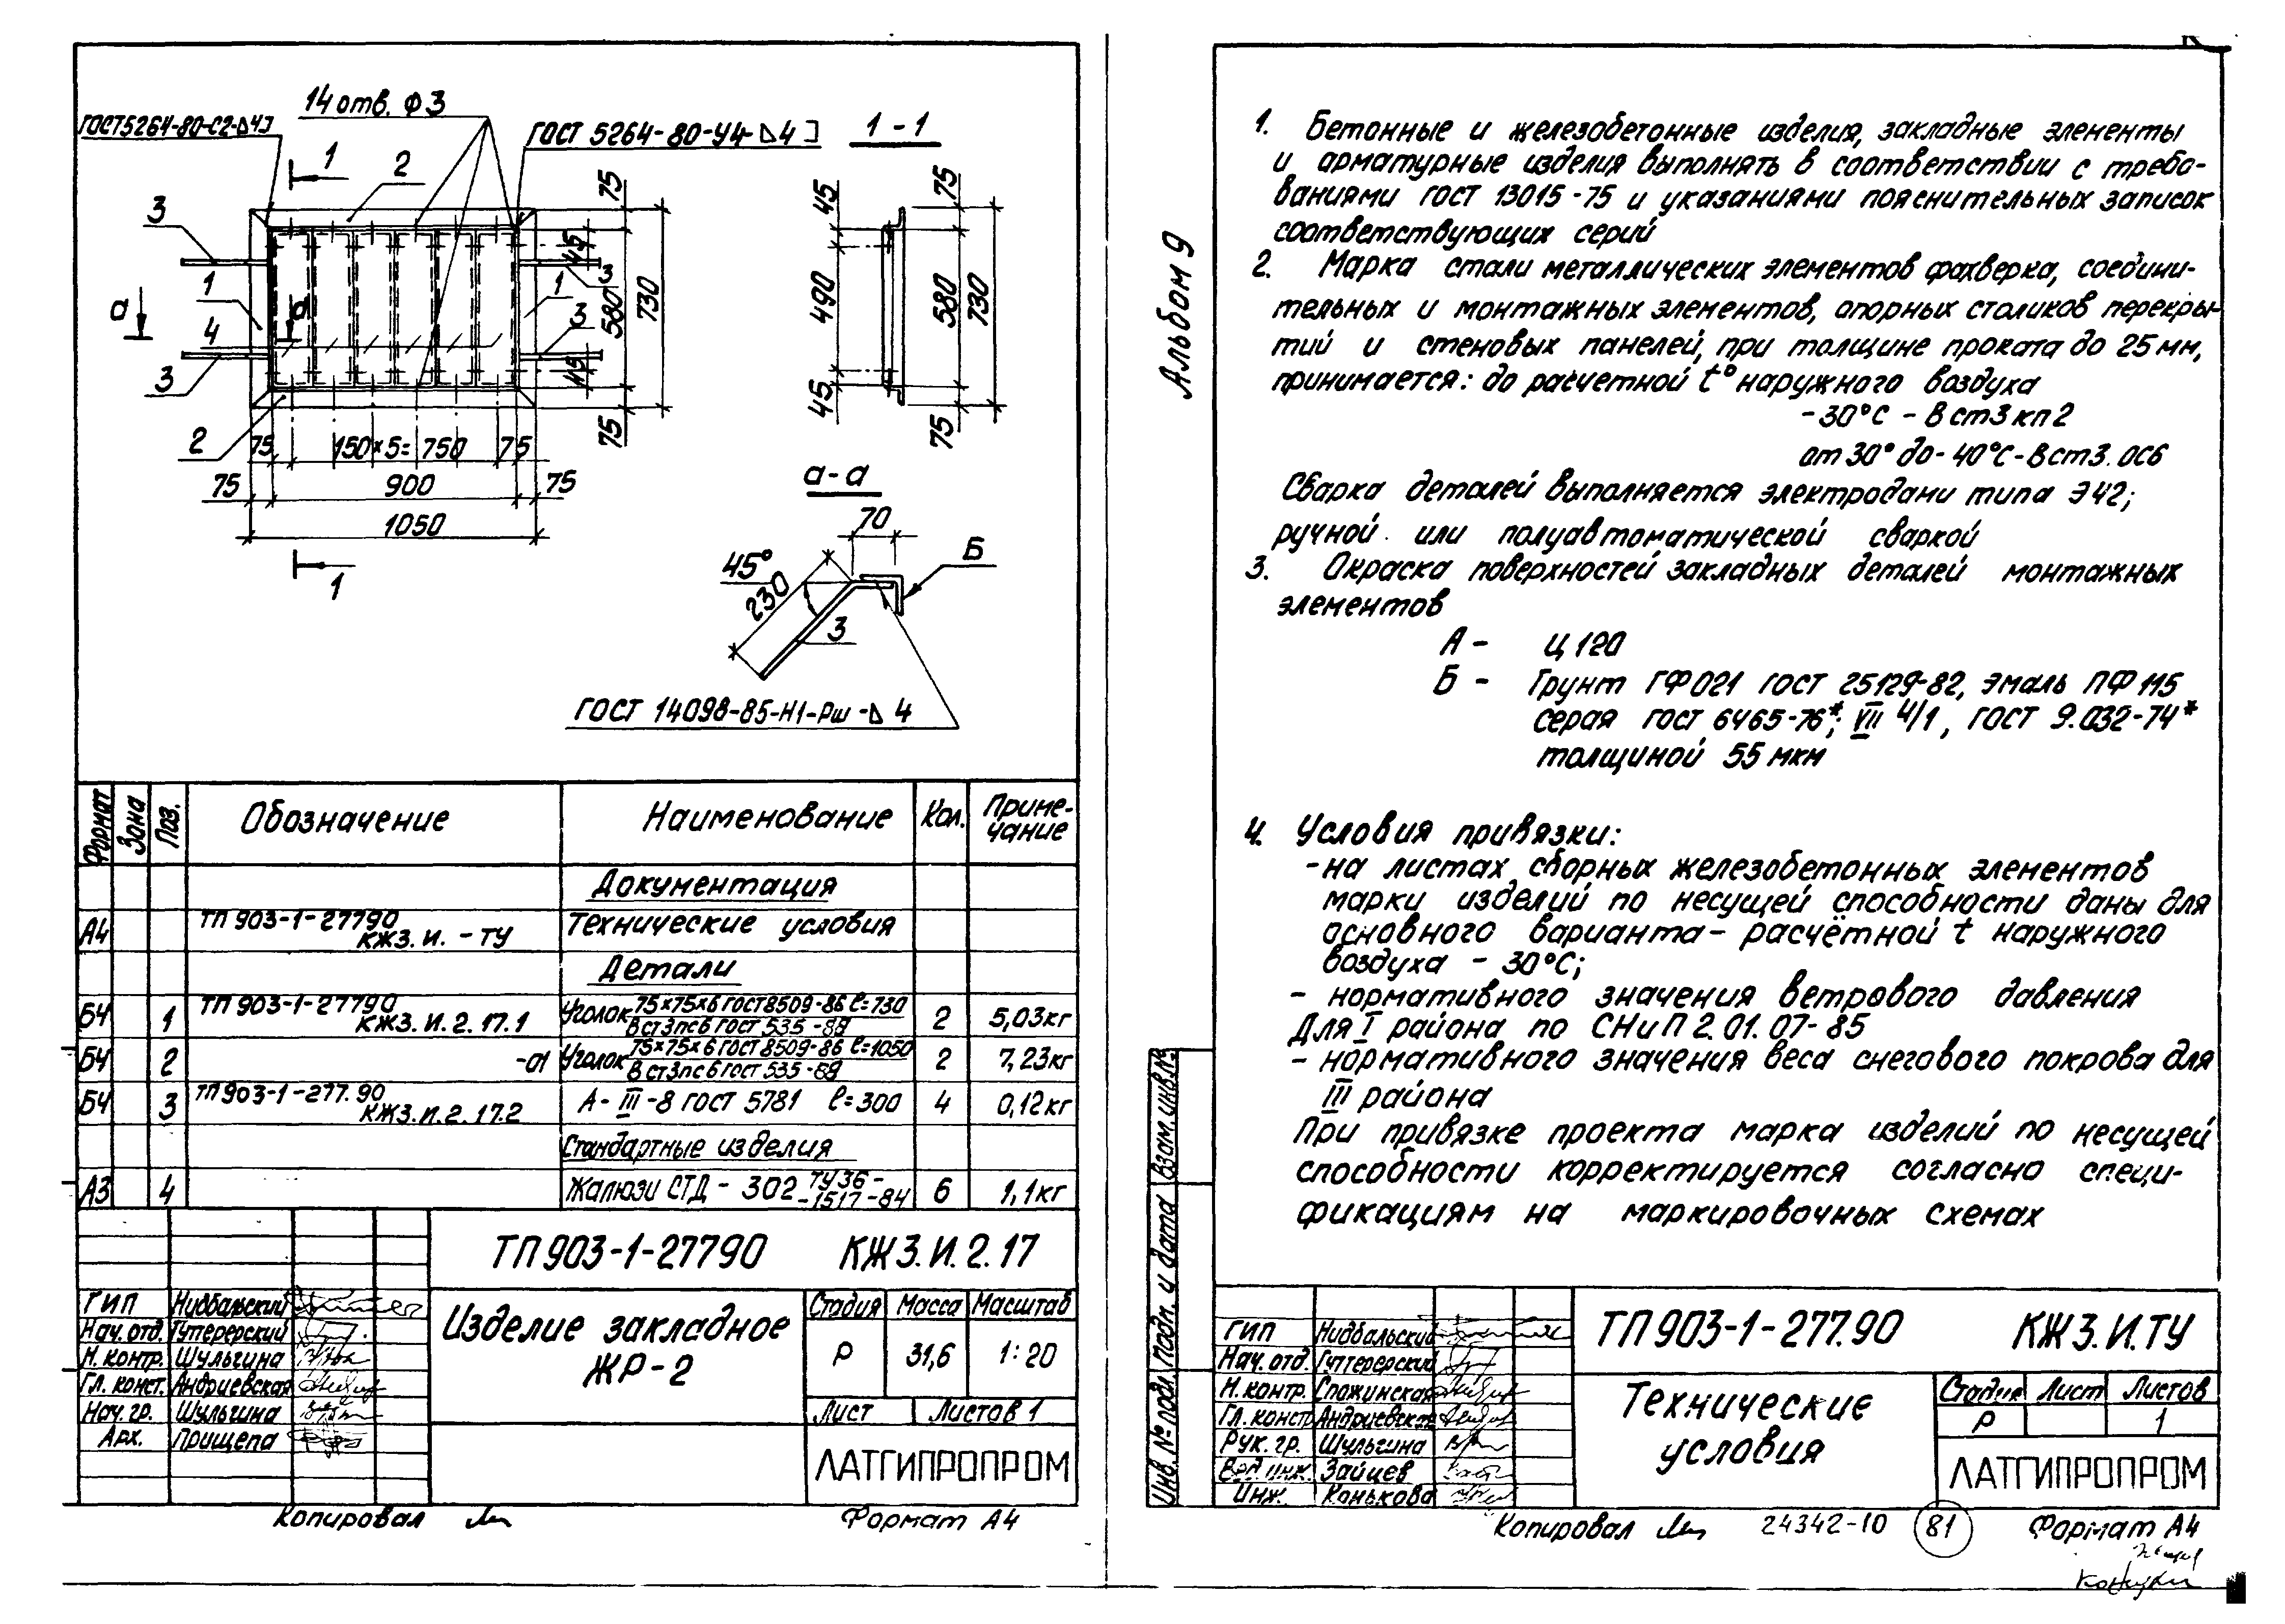 14 отв. Ф3
ГОСТ5264-80-С2-⊿4
ГОСТ 5264-80-У4-⊿4
1
2
3
1
а
4
3
2
а
3
1
3
75
45
580
730
45
75
75
150×5=750
75
75
900
75
1050
1
1-1
45
490
45
75
580
730
75
а-а
70
45°
230
3
Б
ГОСТ 14098-85-Н1-Рш-⊿4
Формат Зона Поз. Обозначение Наименование Кол. Приме-
чание
Документация
А4 ТП 903-1-27790
КЖ3.И. -ТУ Технические условия
Детали
Б4 1 ТП 903-1-27790
КЖ3.И.2.17.1 Уголок 75×75×6 ГОСТ8509-86 ℓ=730
Вст3пс6 ГОСТ 535-88 2 5,03кг
Б4 2 -01 Уголок 75×75×6 ГОСТ 8509-86 ℓ=1050
Вст3пс6 ГОСТ 535-88 2 7,23кг
Б4 3 ТП 903-1-277.90
КЖ3.И.2.17.2 А-III-8 ГОСТ 5781 ℓ=300 4 0,12кг
Стандартные изделия
А3 4 Жалюзи СТД-302 ТУ36-
-1517-84 6 1,1кг
ТП 903-1-27790 КЖ3.И.2.17
ГИП Нидбальский
Нач.отд. Гуттерерский
Н.контр. Шульгина
Гл.конст. Андриевская
Нач.гр. Шульгина
Арх. Прищепа
Изделие закладное
ЖР-2
Стадия Масса Масштаб
Р 31,6 1:20
Лист Листов 1
ЛАТГИПРОПРОМ
Копировал
Формат А4
Альбом 9
1. Бетонные и железобетонные изделия, закладные элементы
и арматурные изделия выполнять в соответствии с требо-
ваниями ГОСТ 13015-75 и указаниями пояснительных записок
соответствующих серий
2. Марка стали металлических элементов фахверка, соедини-
тельных и монтажных элементов, опорных столиков перекры-
тий и стеновых панелей, при толщине проката до 25мм,
принимается: до расчетной t° наружного воздуха
-30°С - Вст3кп2
от 30° до -40°С-Вст3.пс6
Сварка деталей выполняется электродами типа Э42;
ручной или полуавтоматической сваркой
3. Окраска поверхностей закладных деталей монтажных
элементов
А - Ц 120
Б - Грунт ГФ021 ГОСТ 25129-82, эмаль ПФ 115
серая ГОСТ 6465-76*; VII 4/1, ГОСТ 9.032-74*
толщиной 55 мкм
4. Условия привязки:
-на листах сборных железобетонных элементов
марки изделий по несущей способности даны для
основного варианта - расчётной t наружного
воздуха -30°С;
- нормативного значения ветрового давления
Для I района по СНиП 2.01.07-85
- нормативного значения веса снегового покрова для
III района
При привязке проекта марка изделий по несущей
способности корректируется согласно специ-
фикациям на маркировочных схемах
Инв.№подл. Подп. и дата Взам.инв.№
ТП 903-1-277.90 КЖ3.И.ТУ
ГИП Нидбальский
Нач.отд. Гуттерерский
Н.контр. Спожинская
Гл.констр Андриевская
Рук.гр. Шульгина
Вед.инж. Зайцев
Инж. Конькова
Технические
условия
Стадия Лист Листов
Р 1
ЛАТГИПРОПРОМ
Копировал
24342-10
81
Формат А4